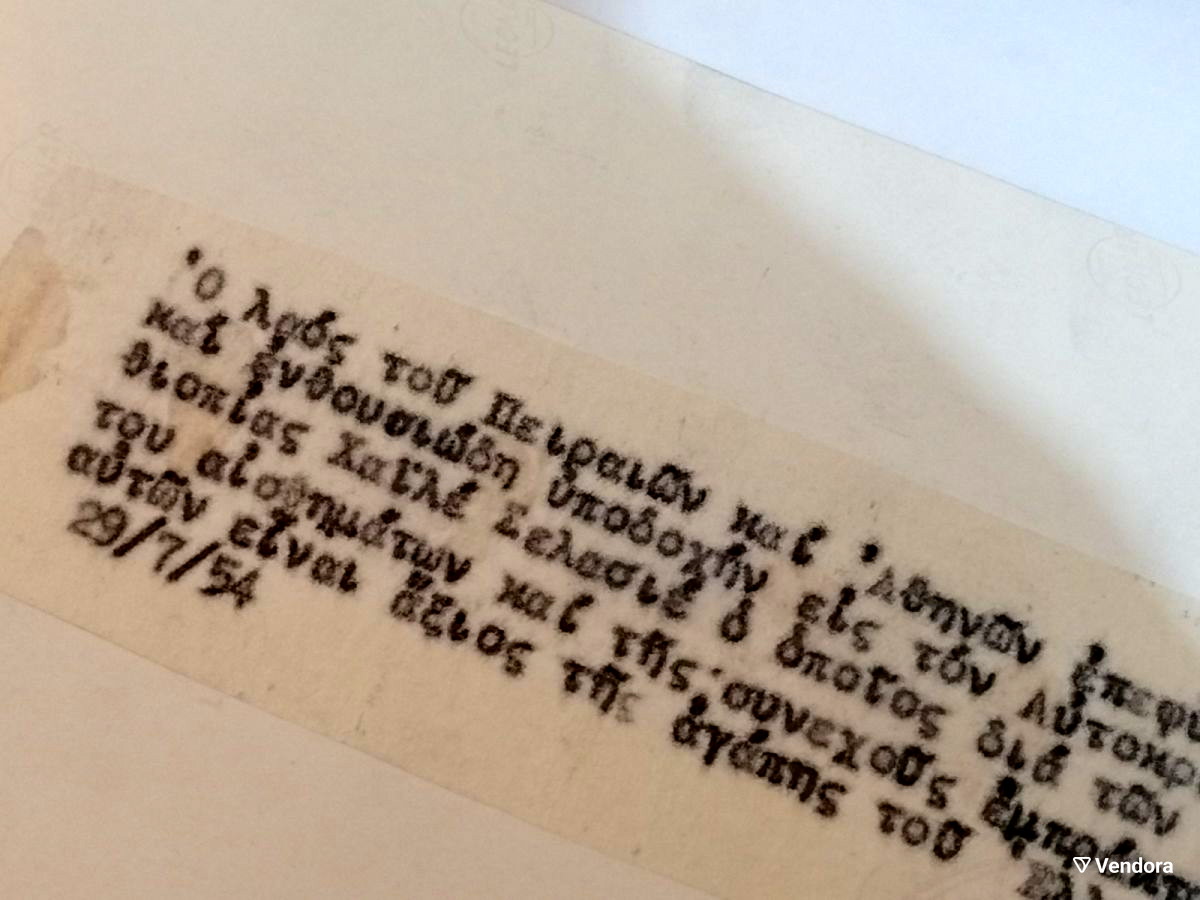 Ὁ λαός τοῦ Πειραιῶς καί Ἀθηνῶν
καί ἐνθουσιώδη ὑποδοχήν εἰς τόν Αὐτοκρ
θιοπίας Χαϊλέ Σελασιέ ὁ ὁποῖος διά τῶν
του αἰσθημάτων καί τῆς συνεχοῦς
αὐτῶν εἶναι ἄξιος τῆς ἀγάπης τοῦ
29/7/54
Vendora